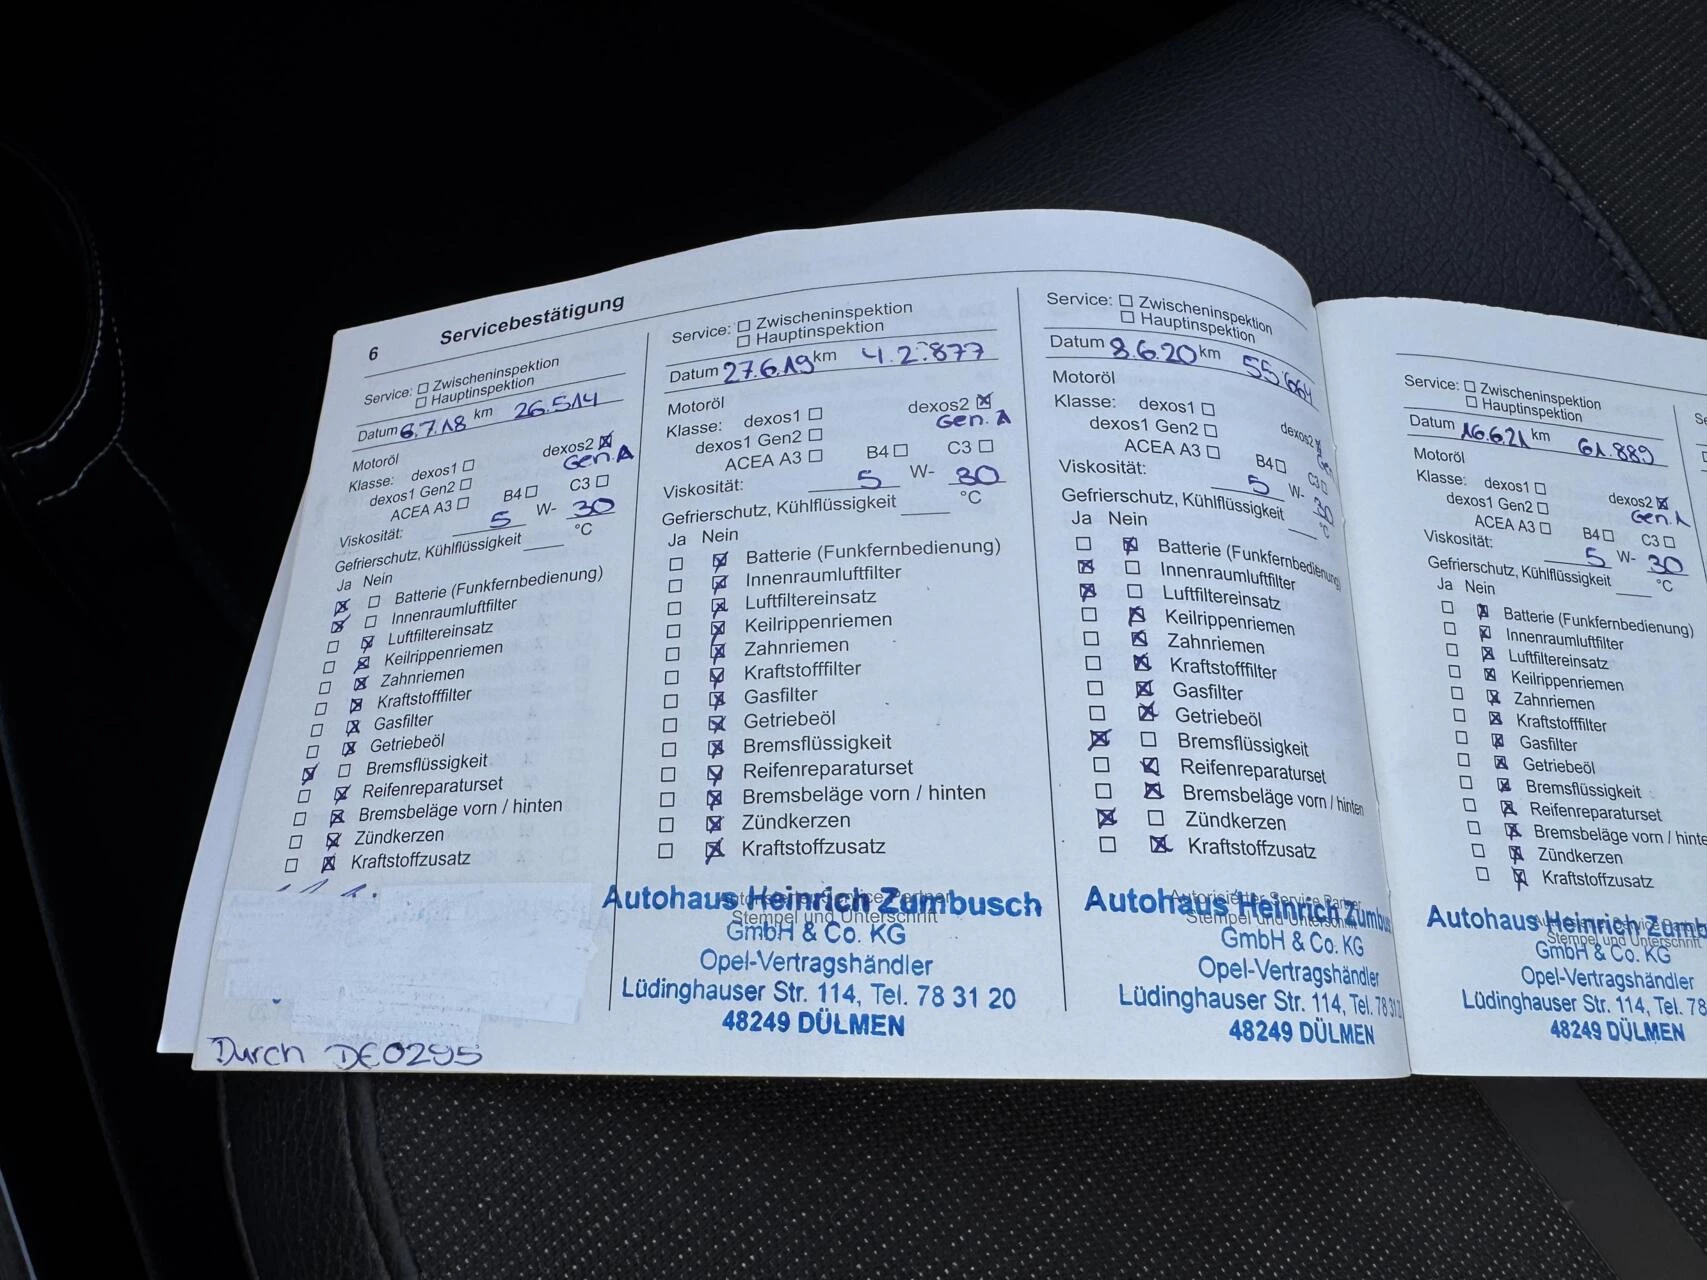 6
Servicebestätigung
Service: ☐ Zwischeninspektion
☐ Hauptinspektion
Datum 6.7.18 km 26.514
Motoröl
Klasse: dexos1 ☐ dexos2 ☒
dexos1 Gen2 ☐ Gen. A
ACEA A3 ☐ B4 ☐ C3 ☐
Viskosität: 5 W- 30
Gefrierschutz, Kühlflüssigkeit ____ °C
Ja Nein
☒ ☐ Batterie (Funkfernbedienung)
☒ ☐ Innenraumluftfilter
☐ ☒ Luftfiltereinsatz
☐ ☒ Keilrippenriemen
☐ ☒ Zahnriemen
☐ ☒ Kraftstofffilter
☐ ☒ Gasfilter
☐ ☒ Getriebeöl
☒ ☐ Bremsflüssigkeit
☐ ☒ Reifenreparaturset
☐ ☒ Bremsbeläge vorn / hinten
☐ ☒ Zündkerzen
☐ ☒ Kraftstoffzusatz
Durch DE0295
Service: ☐ Zwischeninspektion
☐ Hauptinspektion
Datum 27.6.19 km 42.877
Motoröl
Klasse: dexos1 ☐ dexos2 ☒
dexos1 Gen2 ☐ Gen. A
ACEA A3 ☐ B4 ☐ C3 ☐
Viskosität: 5 W- 30
Gefrierschutz, Kühlflüssigkeit ____ °C
Ja Nein
☐ ☒ Batterie (Funkfernbedienung)
☐ ☒ Innenraumluftfilter
☐ ☒ Luftfiltereinsatz
☐ ☒ Keilrippenriemen
☐ ☒ Zahnriemen
☐ ☒ Kraftstofffilter
☐ ☒ Gasfilter
☐ ☒ Getriebeöl
☐ ☒ Bremsflüssigkeit
☐ ☒ Reifenreparaturset
☐ ☒ Bremsbeläge vorn / hinten
☐ ☒ Zündkerzen
☐ ☒ Kraftstoffzusatz
Autohaus Heinrich Zumbusch
Stempel und Unterschrift
GmbH & Co. KG
Opel-Vertragshändler
Lüdinghauser Str. 114, Tel. 78 31 20
48249 DÜLMEN
Service: ☐ Zwischeninspektion
☐ Hauptinspektion
Datum 8.6.20 km 55.664
Motoröl
Klasse: dexos1 ☐ dexos2 ☒
dexos1 Gen2 ☐
ACEA A3 ☐ B4 ☐ C3 ☐
Viskosität: 5 W- 30
Gefrierschutz, Kühlflüssigkeit ____ °C
Ja Nein
☐ ☒ Batterie (Funkfernbedienung)
☒ ☐ Innenraumluftfilter
☒ ☐ Luftfiltereinsatz
☐ ☒ Keilrippenriemen
☐ ☒ Zahnriemen
☐ ☒ Kraftstofffilter
☐ ☒ Gasfilter
☐ ☒ Getriebeöl
☒ ☐ Bremsflüssigkeit
☐ ☒ Reifenreparaturset
☐ ☒ Bremsbeläge vorn / hinten
☒ ☐ Zündkerzen
☐ ☒ Kraftstoffzusatz
Autorisierter Service Partner
Autohaus Heinrich Zumbus
Stempel und Unterschrift
GmbH & Co. KG
Opel-Vertragshändler
Lüdinghauser Str. 114, Tel. 78 31 2
48249 DÜLMEN
Service: ☐ Zwischeninspektion
☐ Hauptinspektion
Datum 16.6.21 km 61.889
Motoröl
Klasse: dexos1 ☐ dexos2 ☒
dexos1 Gen2 ☐ Gen. A
ACEA A3 ☐ B4 ☐ C3 ☐
Viskosität: 5 W- 30
Gefrierschutz, Kühlflüssigkeit ____ °C
Ja Nein
☐ ☒ Batterie (Funkfernbedienung)
☐ ☒ Innenraumluftfilter
☐ ☒ Luftfiltereinsatz
☐ ☒ Keilrippenriemen
☐ ☒ Zahnriemen
☐ ☒ Kraftstofffilter
☐ ☒ Gasfilter
☐ ☒ Getriebeöl
☐ ☒ Bremsflüssigkeit
☐ ☒ Reifenreparaturset
☐ ☒ Bremsbeläge vorn / hinte
☐ ☒ Zündkerzen
☐ ☒ Kraftstoffzusatz
Autohaus Heinrich Zumb
Stempel und Unterschrift
GmbH & Co. KG
Opel-Vertragshändler
Lüdinghauser Str. 114, Tel. 78
48249 DÜLMEN